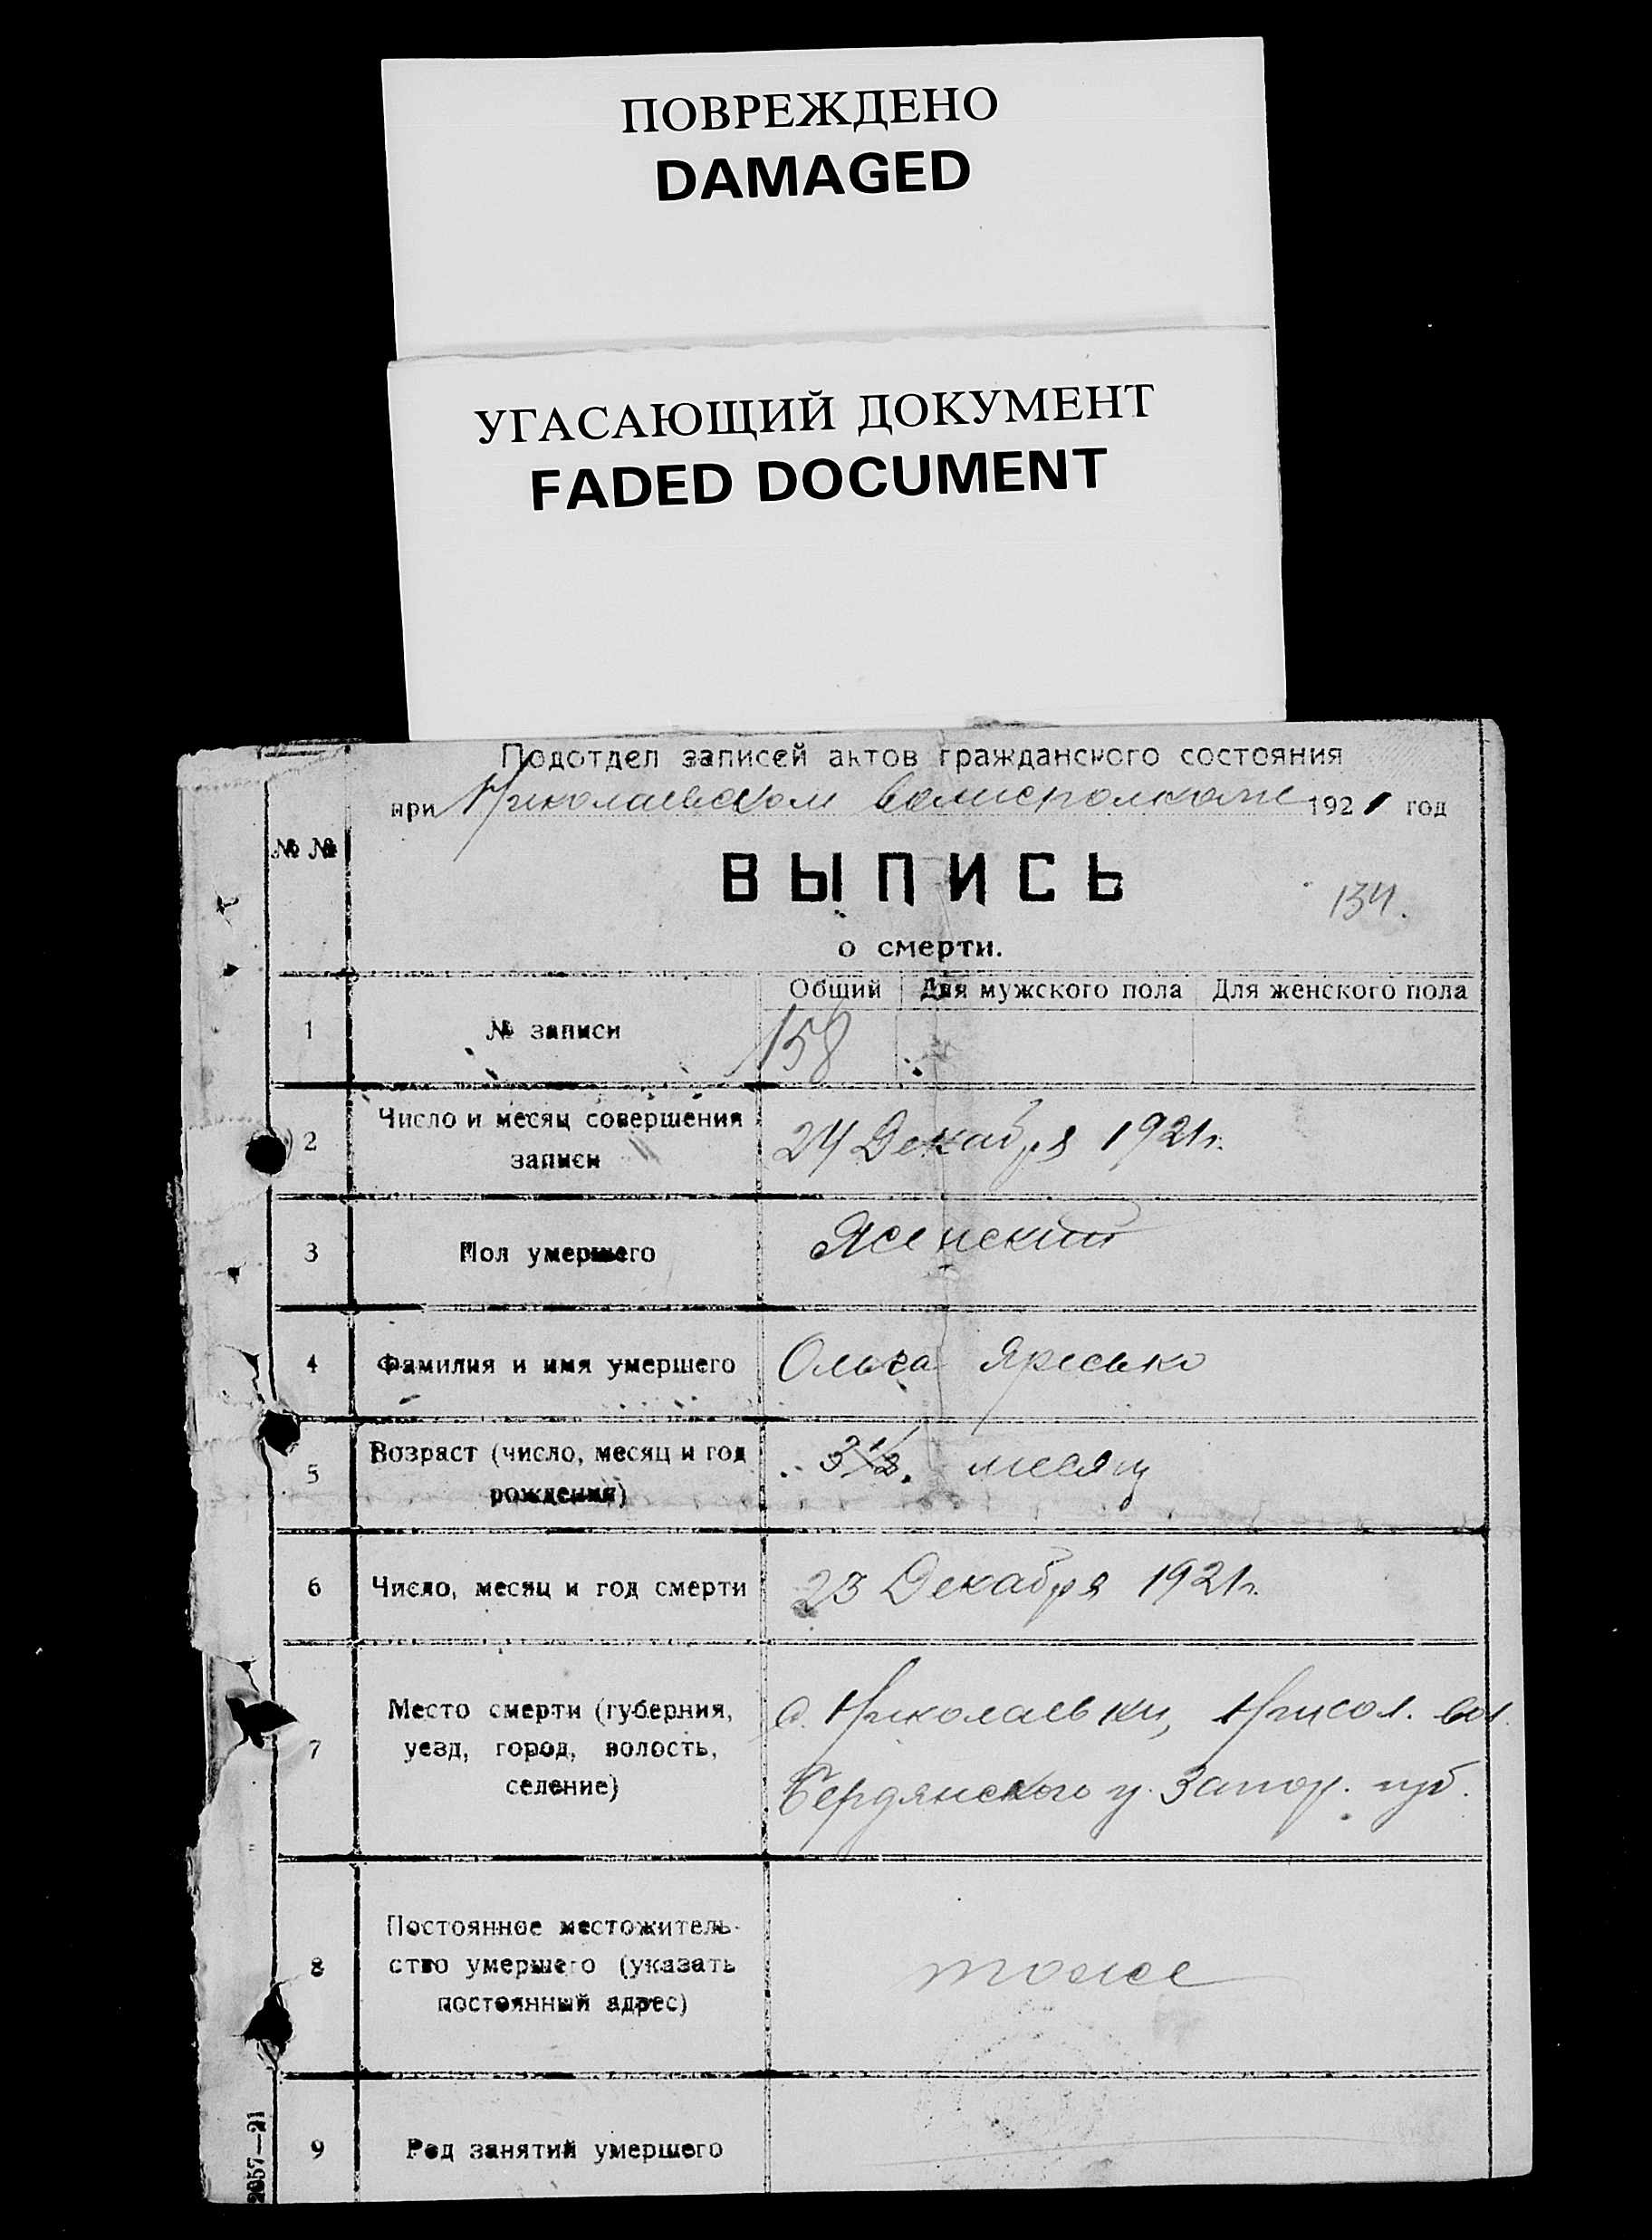 ПОВРЕЖДЕНО
DAMAGED
УГАСАЮЩИЙ ДОКУМЕНТ
FADED DOCUMENT
Подотдел записей актов гражданского состояния
при Николаевском волисполкоме 1921 год
№ №
ВЫПИСЬ
134.
о смерти.
Общий Для мужского пола Для женского пола
1 № записи 158
2 Число и месяц совершения
записи 24 Декабря 1921 г.
3 Пол умершего Женский
4 Фамилия и имя умершего Ольга Яресько
5 Возраст (число, месяц и год
рождения) месяц
6 Число, месяц и год смерти 23 Декабря 1921 г.
7 Место смерти (губерния, с. Николаевки, Никол. вол.
уезд, город, волость,
селение) Бердянского у. Запор. губ.
8 Постоянное местожитель-
ство умершего (указать тоже
постоянный адрес)
9 Род занятий умершего
2057—21